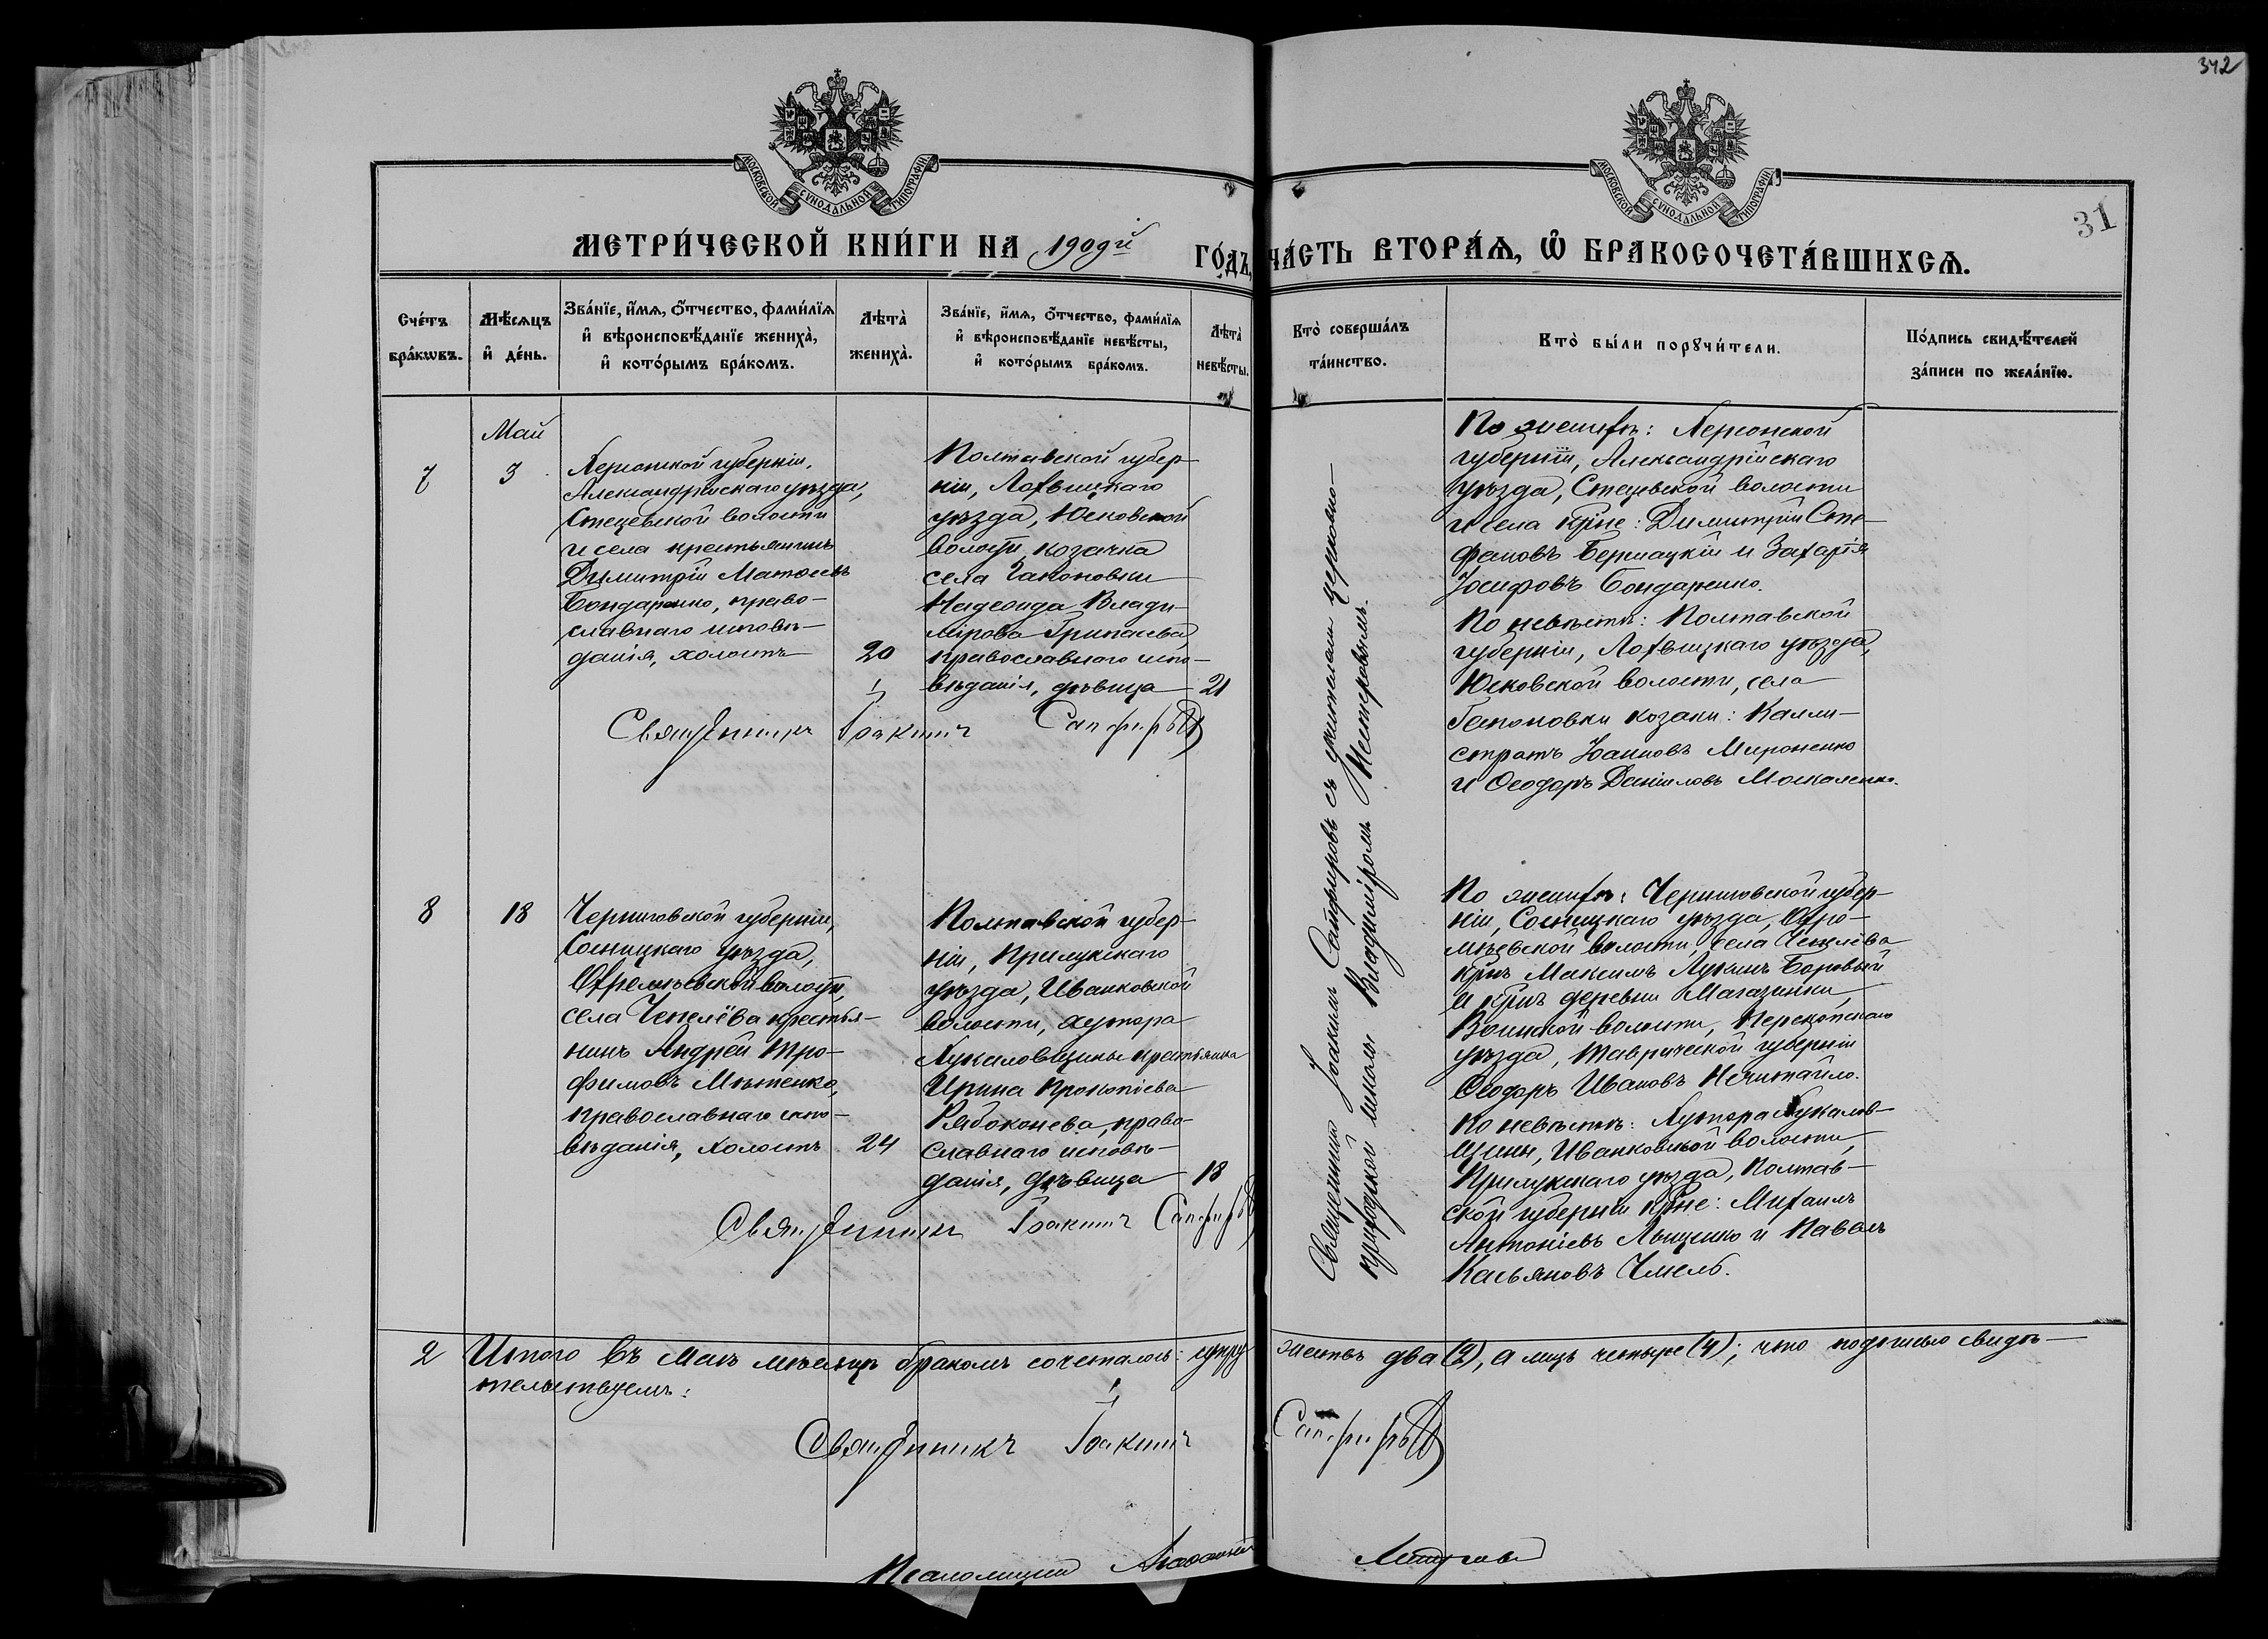 342
31
МОСКОВСКОЙ СУНОДАЛЬНОЙ ТИПОГРАФІИ
МОСКОВСКОЙ СУНОДАЛЬНОЙ ТИПОГРАФІИ
МЕТРИ́ЧЕСКОЙ КНИ́ГИ НА 1909й ГО́ДЪ, ЧА́СТЬ ВТОРА́Ѧ, Ѽ БРАКОСОЧЕТА́ВШИХСѦ.
Сче́тъ
бра́кѡвъ.
Мѣ́сѧцъ
и҆ де́нь.
Зва́нїе, и҆́мѧ, о҆́тчество, фами́лїѧ
и҆ вѣроисповѣ́данїе жениха̀,
и҆ кото́рымъ бра́комъ.
Лѣта̀
жениха̀.
Зва́нїе, и҆́мѧ, о҆́тчество, фами́лїѧ
и҆ вѣроисповѣ́данїе невѣ́сты,
и҆ кото́рымъ бра́комъ.
Лѣта̀
невѣ́сты.
Кто̀ соверша́лъ
та́инство.
Кто̀ бы́ли порꙋчи́тели.
По́дпись свидѣ́телей
за́писи по жела́нїю.
7
Май
3
Херсонской губерніи,
Александрійскаго уѣзда,
Стецевской волости
и села крестьянинъ
Димитрій Матѳеевъ
Бондаренко, право-
славнаго исповѣ-
данія, холостъ
20
Полтавской губер-
ніи, Лохвицкаго
уѣзда, Юсковской
волости, козачка
села Гапоновки
Надежда Влади-
мірова
православнаго испо-
вѣданія, дѣвица
21
Священникъ Іоакимъ Сапфировъ
По женихѣ: Херсонской
губерніи, Александрійскаго
уѣзда, Стецевской волости
и села кр‑не: Димитрій Сте-
фановъ и Захарія
Іосифовъ Бондаренко.
По невѣстѣ: Полтавской
губерніи, Лохвицкаго уѣзда,
Юсковской волости, села
Гапоновки козаки: Калли-
стратъ Іоанновъ Мироненко
и Ѳеодоръ Даніиловъ Москаленко.
Священникъ Іоакимъ Сапфировъ съ учителемъ церковно-
приходской школы Владиміромъ Нестеровымъ.
8
18
Черниговской губерніи,
Сосницкаго уѣзда,
Охрамѣевской волости,
села Чепелёва крестья-
нинъ Андрей Тро-
фимовъ
православнаго испо-
вѣданія, холостъ
24
Полтавской губер-
ніи, Прилукскаго
уѣзда, Иванковской
волости, хутора
крестьянка
Ирина Прокопіева
Рябоконева, право-
славнаго исповѣ-
данія, дѣвица
18
Священникъ Іоакимъ Сапфировъ
По женихѣ: Черниговской губер-
ніи, Сосницкаго уѣзда, Охра-
мѣевской волости, села Чепелёва
кр‑нъ Максимъ Лукинъ Боровый
и кр‑нъ деревни Магазинки,
Воинской волости, Перекопскаго
уѣзда, Таврической губерніи
Ѳеодоръ Ивановъ Нечитайло.
По невѣстѣ: Хутора
щины, Иванковской волости,
Прилукскаго уѣзда, Полтав-
ской губерніи кр‑не: Михаилъ
Антоніевъ и Павелъ
Касьяновъ Чмель.
2 Итого въ Маѣ мѣсяцѣ бракомъ сочеталось: супружествъ два (2), а лицъ четыре (4); что подписью свидѣ-
тельствуемъ:
Священникъ Іоакимъ Сапфировъ
Псаломщикъ